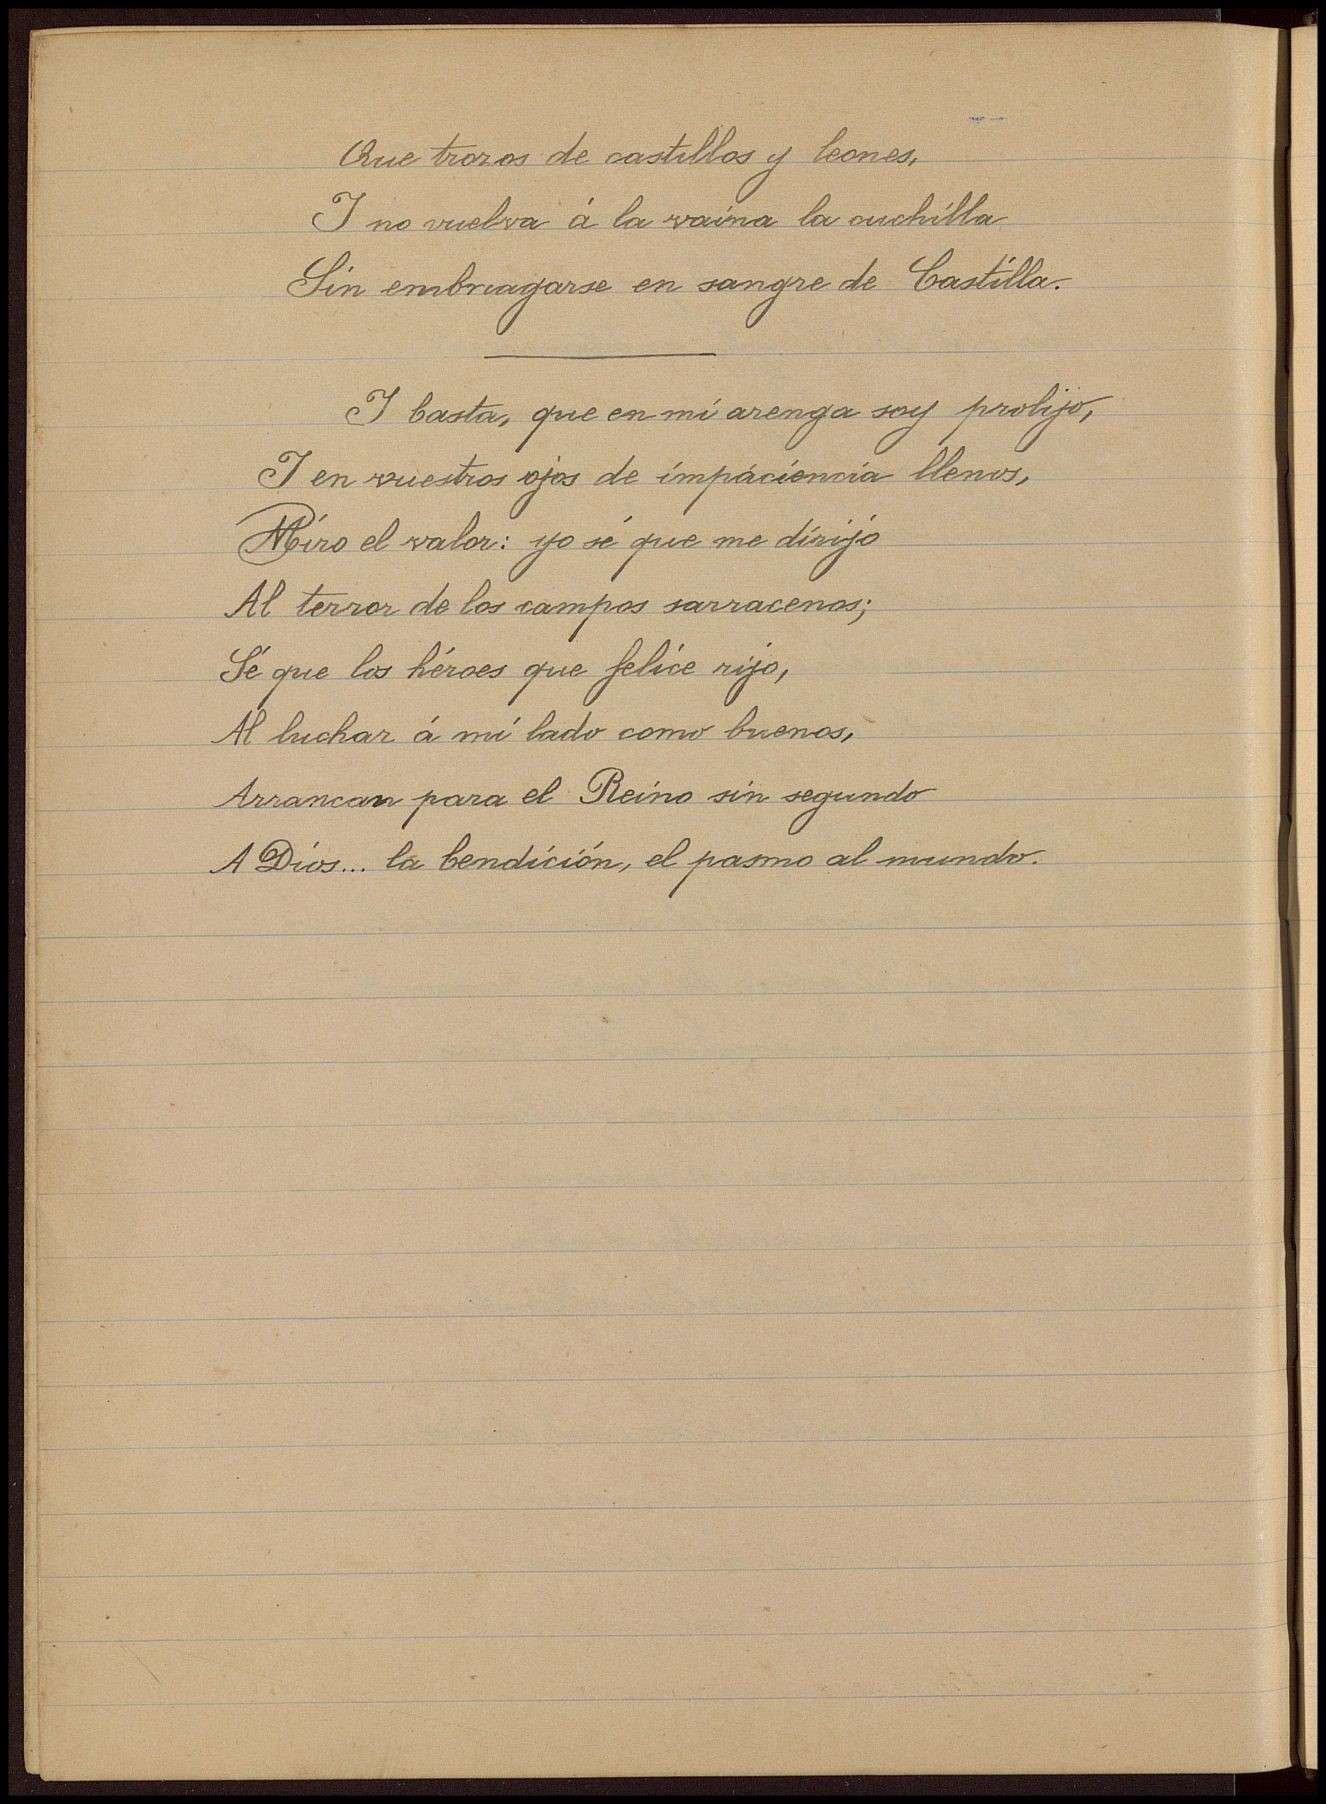 Que trozos de castillos y leones,
I no vuelva á la vaina la cuchilla
Sin embriagarse en sangre de Castilla.
I basta, que en mi arenga soy prolijo,
I en vuestros ojos de impaciencia llenos,
Miro el valor: yo sé que me dirijo
Al terror de los campos sarracenos;
Sé que los héroes que felice rijo,
Al luchar á mi lado como buenos,
Arrancan para el Reino sin segundo
A Dios... la bendición, el pasmo al mundo.